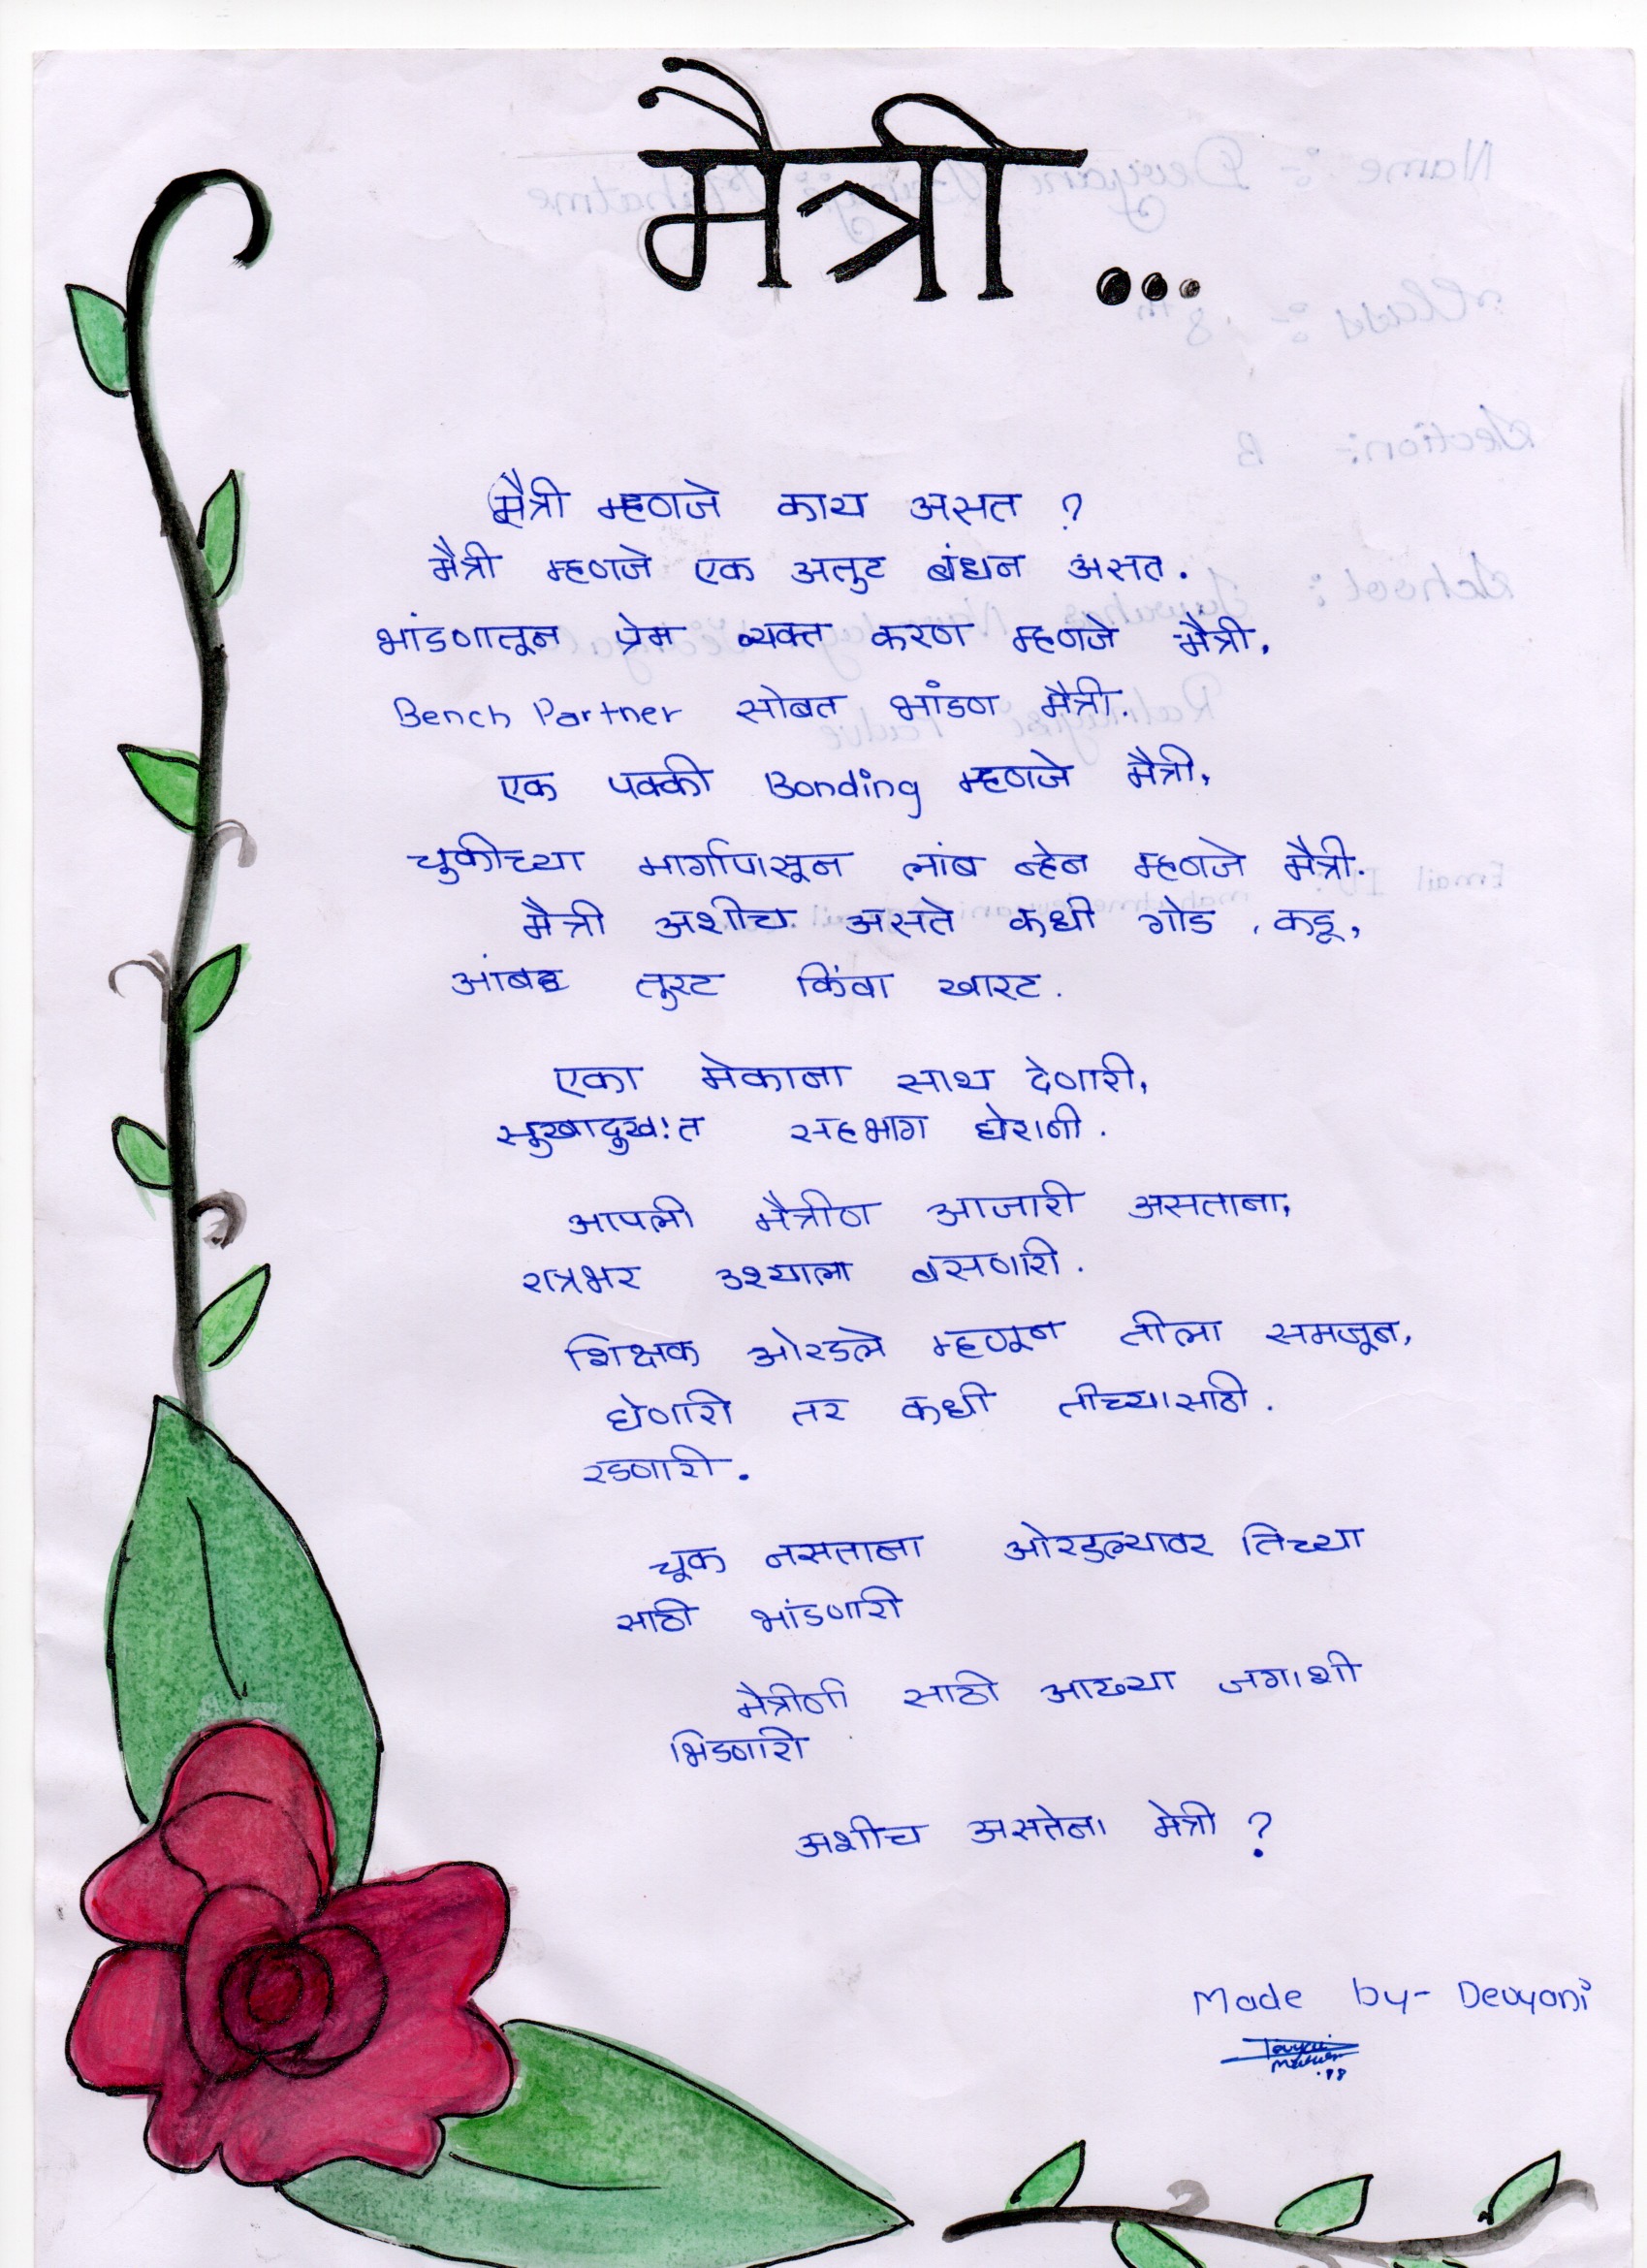 मैत्री...
मैत्री म्हणजे काय असत ?
मैत्री म्हणजे एक अतुट बंधन असत.
भांडणातून प्रेम व्यक्त करण म्हणजे मैत्री.
Bench Partner सोबत भांडण मैत्री.
एक पक्की Bonding म्हणजे मैत्री,
चुकीच्या मार्गापासून लांब न्हेन म्हणजे मैत्री.
मैत्री अशीच असते कधी गोड , कडू,
आंबट तुरट किंवा खारट.
एका मेकाना साथ देणारी,
सुखादुखःत सहभाग घेरानी.
आपली मैत्रीण आजारी असताना,
रात्रभर उश्याला बसणारी.
शिक्षक ओरडले म्हणून तीला समजून,
घेणारी तर कधी तीच्यासाठी.
रडणारी.
चूक नसताना ओरडल्यावर तिच्या
साठी भांडणारी
मैत्रीणी साठी आख्या जगाशी
भिडणारी
अशीच असतेना मेत्री ?
Made by- Devyani